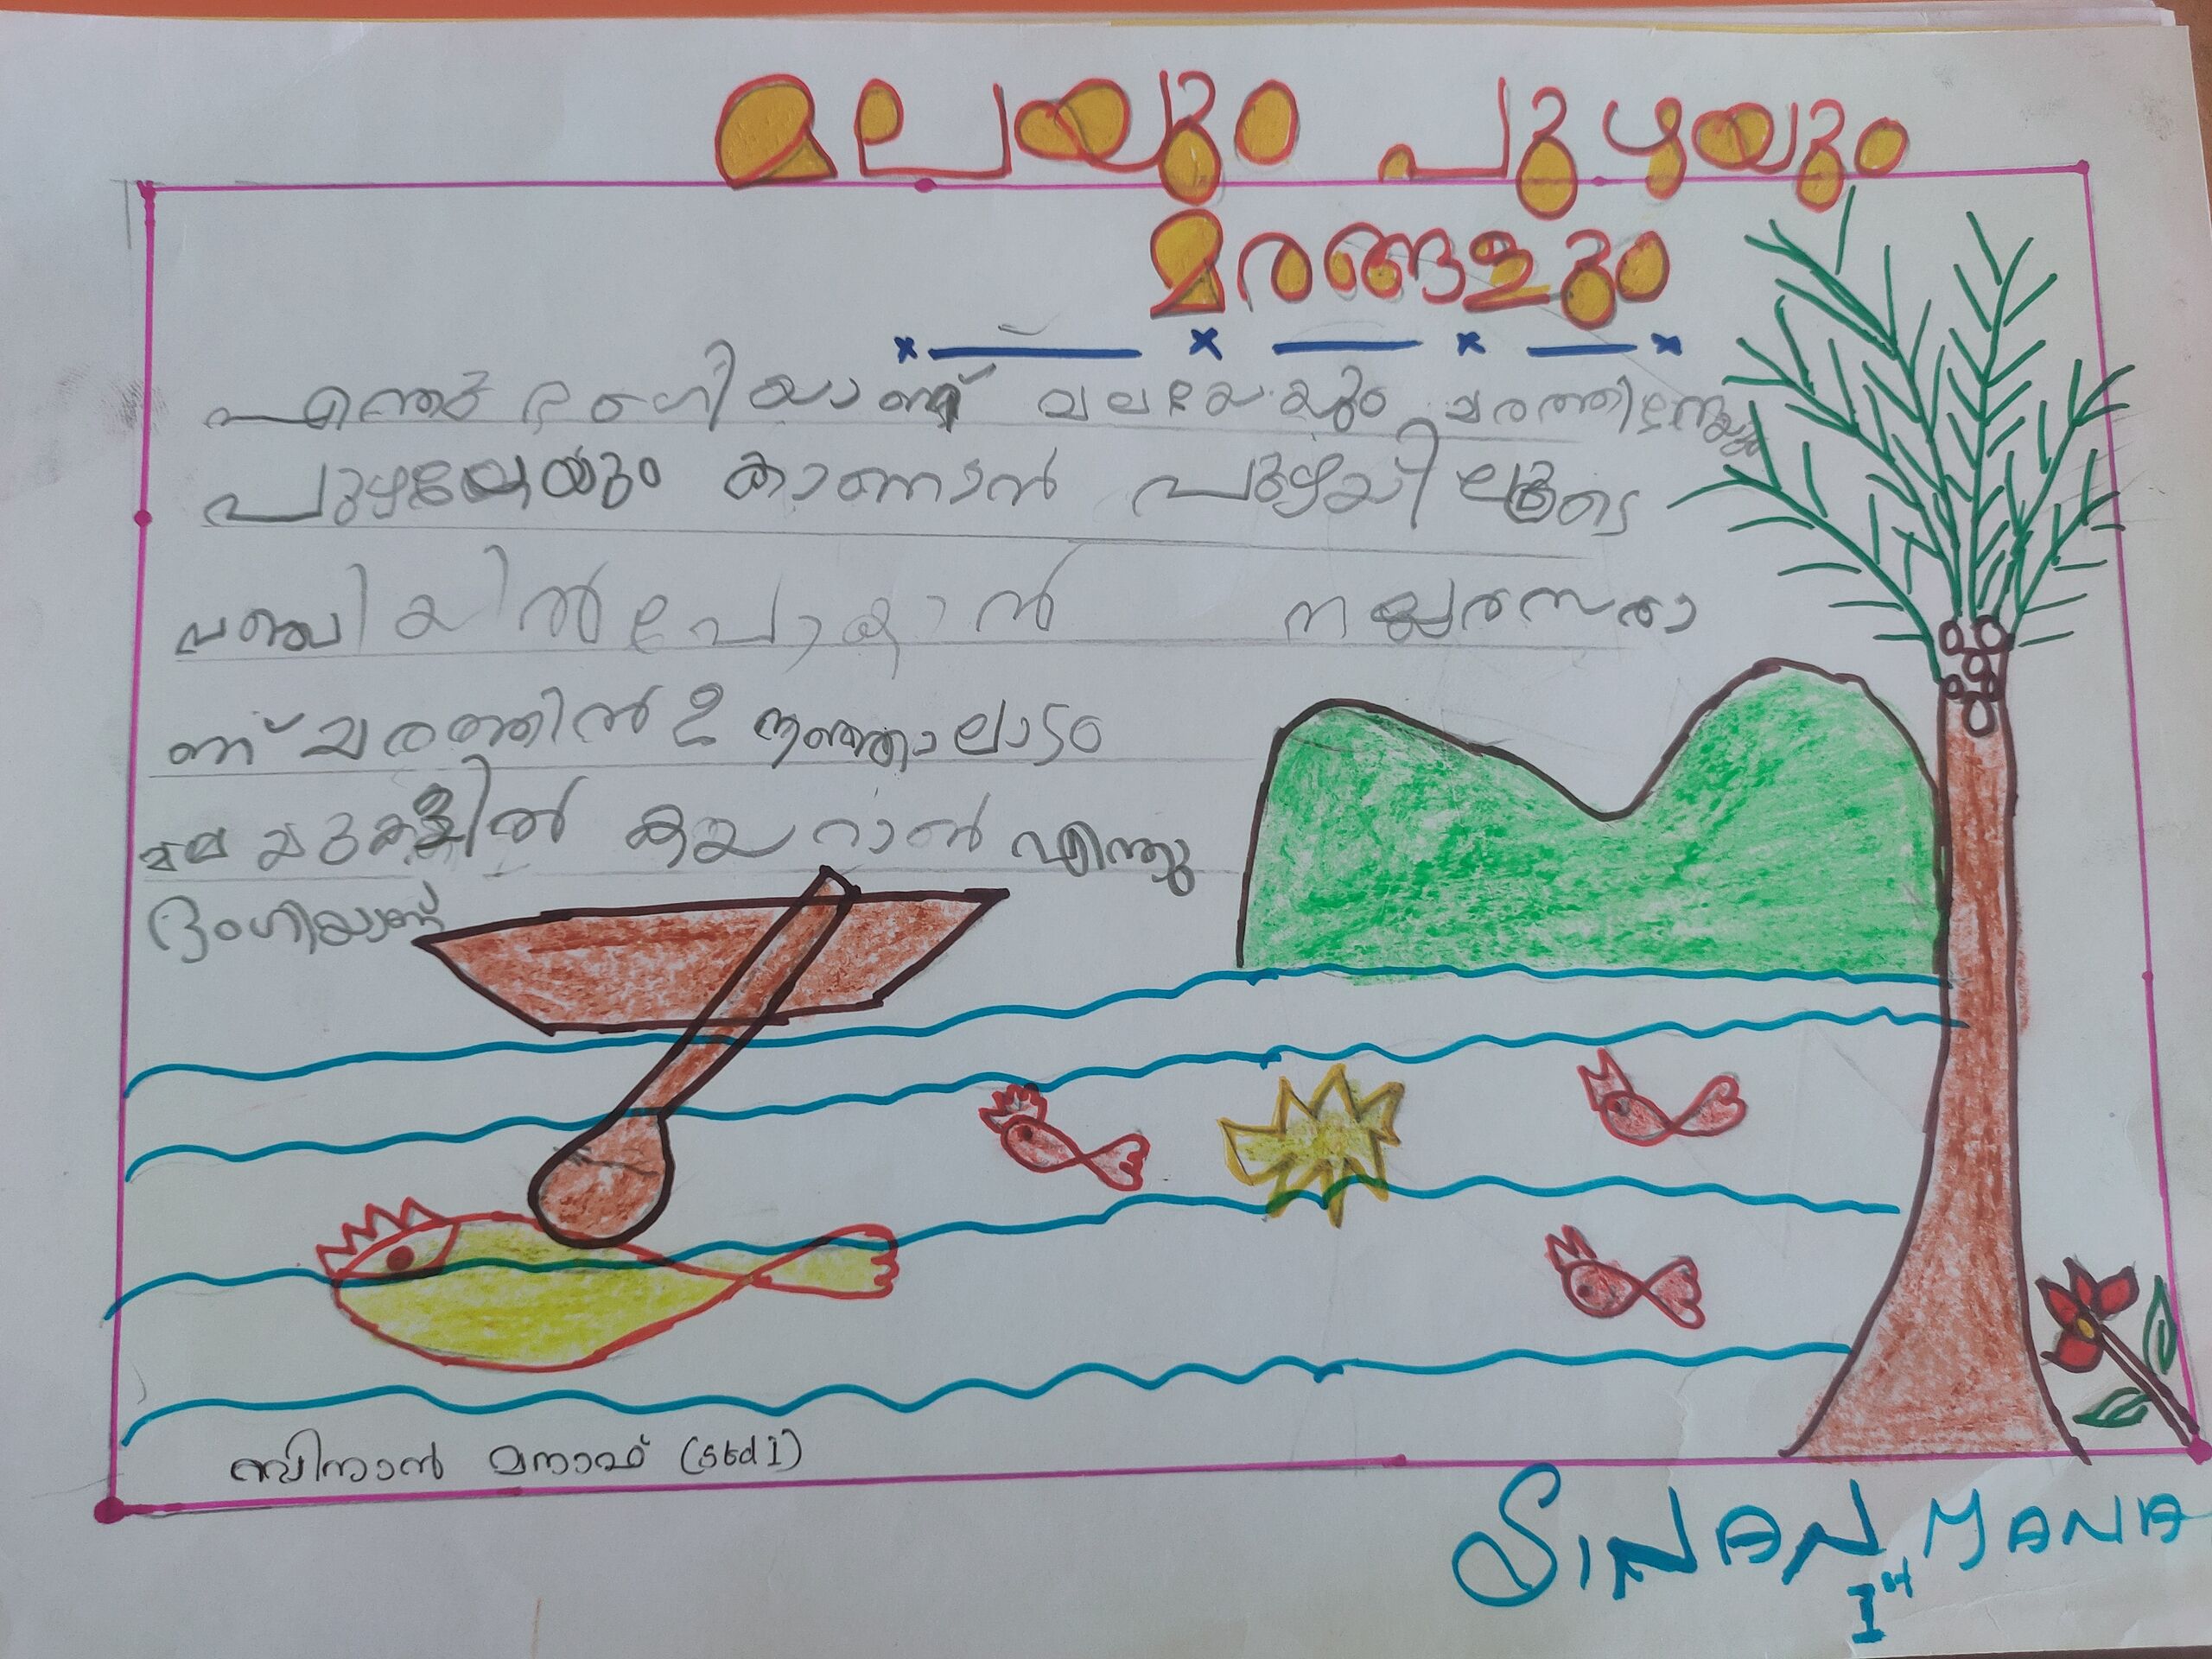 മലയും പുഴയും
മരങ്ങളും
എന്തു ഭംഗിയാണ് മലയേയും മരത്തിനേയും
പുഴയേയും കാണാൻ പുഴയിലൂടെ
വഞ്ചിയിൽ പോകാൻ നല്ലരസമാ
ണ് മരത്തിൽ ഊഞ്ഞാലാടം
മലയുകളിൽ കയറാൻ എന്തു
ഭംഗിയാണ്
സിനാൻ മനാഫ് (std I)
SINAN MANA
Ist